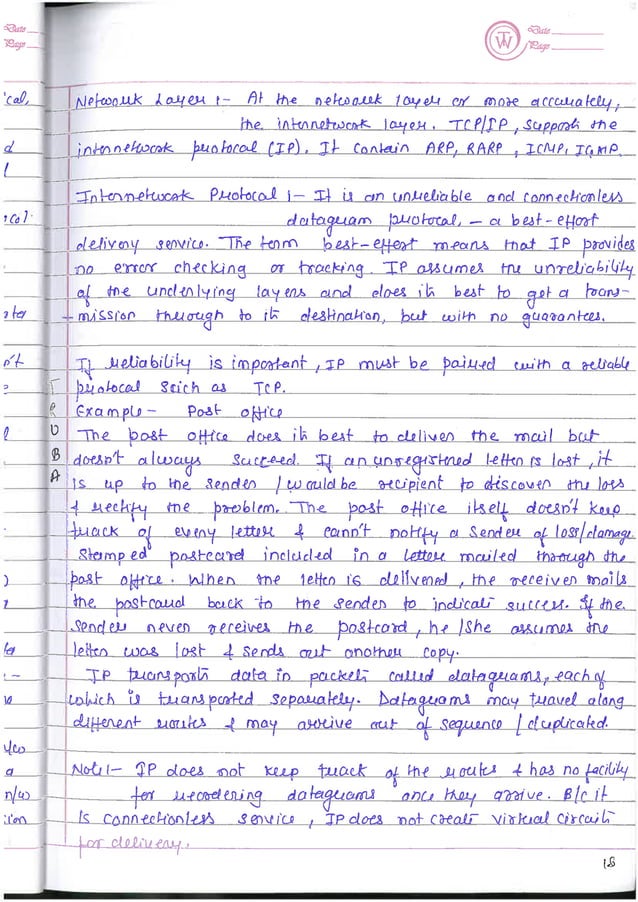 Date
Page
TW
Date
Page
ical,
Network Layer :- At the network layer or more accurately,
the internetwork layer. TCP/IP, support the
d
internetwork protocal (IP). It contain ARP, RARP, ICMP, IGMP.
l
Internetwork Protocal :- It is an unreliable and connectionless
datagram protocal, – a best-effort
delivery service. The term best-effort means that IP provides
no error checking or tracking. IP assumes the unreliability
of the underlying layers and does its best to get a trans-
-mission through to its destination, but with no guarantees.
If reliability is important, IP must be paired with a reliable
protocal such as TCP.
Example - Post office
The post office does its best to deliver the mail but
doesn't always succeed. If an unregistered letter is lost, it
is up to the sender / would be recipient to discover the loss
& rectify the problem. The post office itself doesn't keep
track of every letter & cann't notify a sender of loss/damage.
Stamped postcard included in a letter mailed through the
post office. When the letter is delivered, the receiver mails
the postcard back to the sender to indicate success. If the
sender never receives the postcard, he/she assumes the
letter was lost & sends out another copy.
IP transports data in packets called datagrams, each of
which is transported separately. Datagrams may travel along
different routes & may arrive out of sequence / duplicated.
Note:- IP does not keep track of the routes & has no facility
for recordering datagrams once they arrive. B/c it
n/w
is connectionless service, IP does not create virtual circuits
tion
for delivery.
TRUBA
18